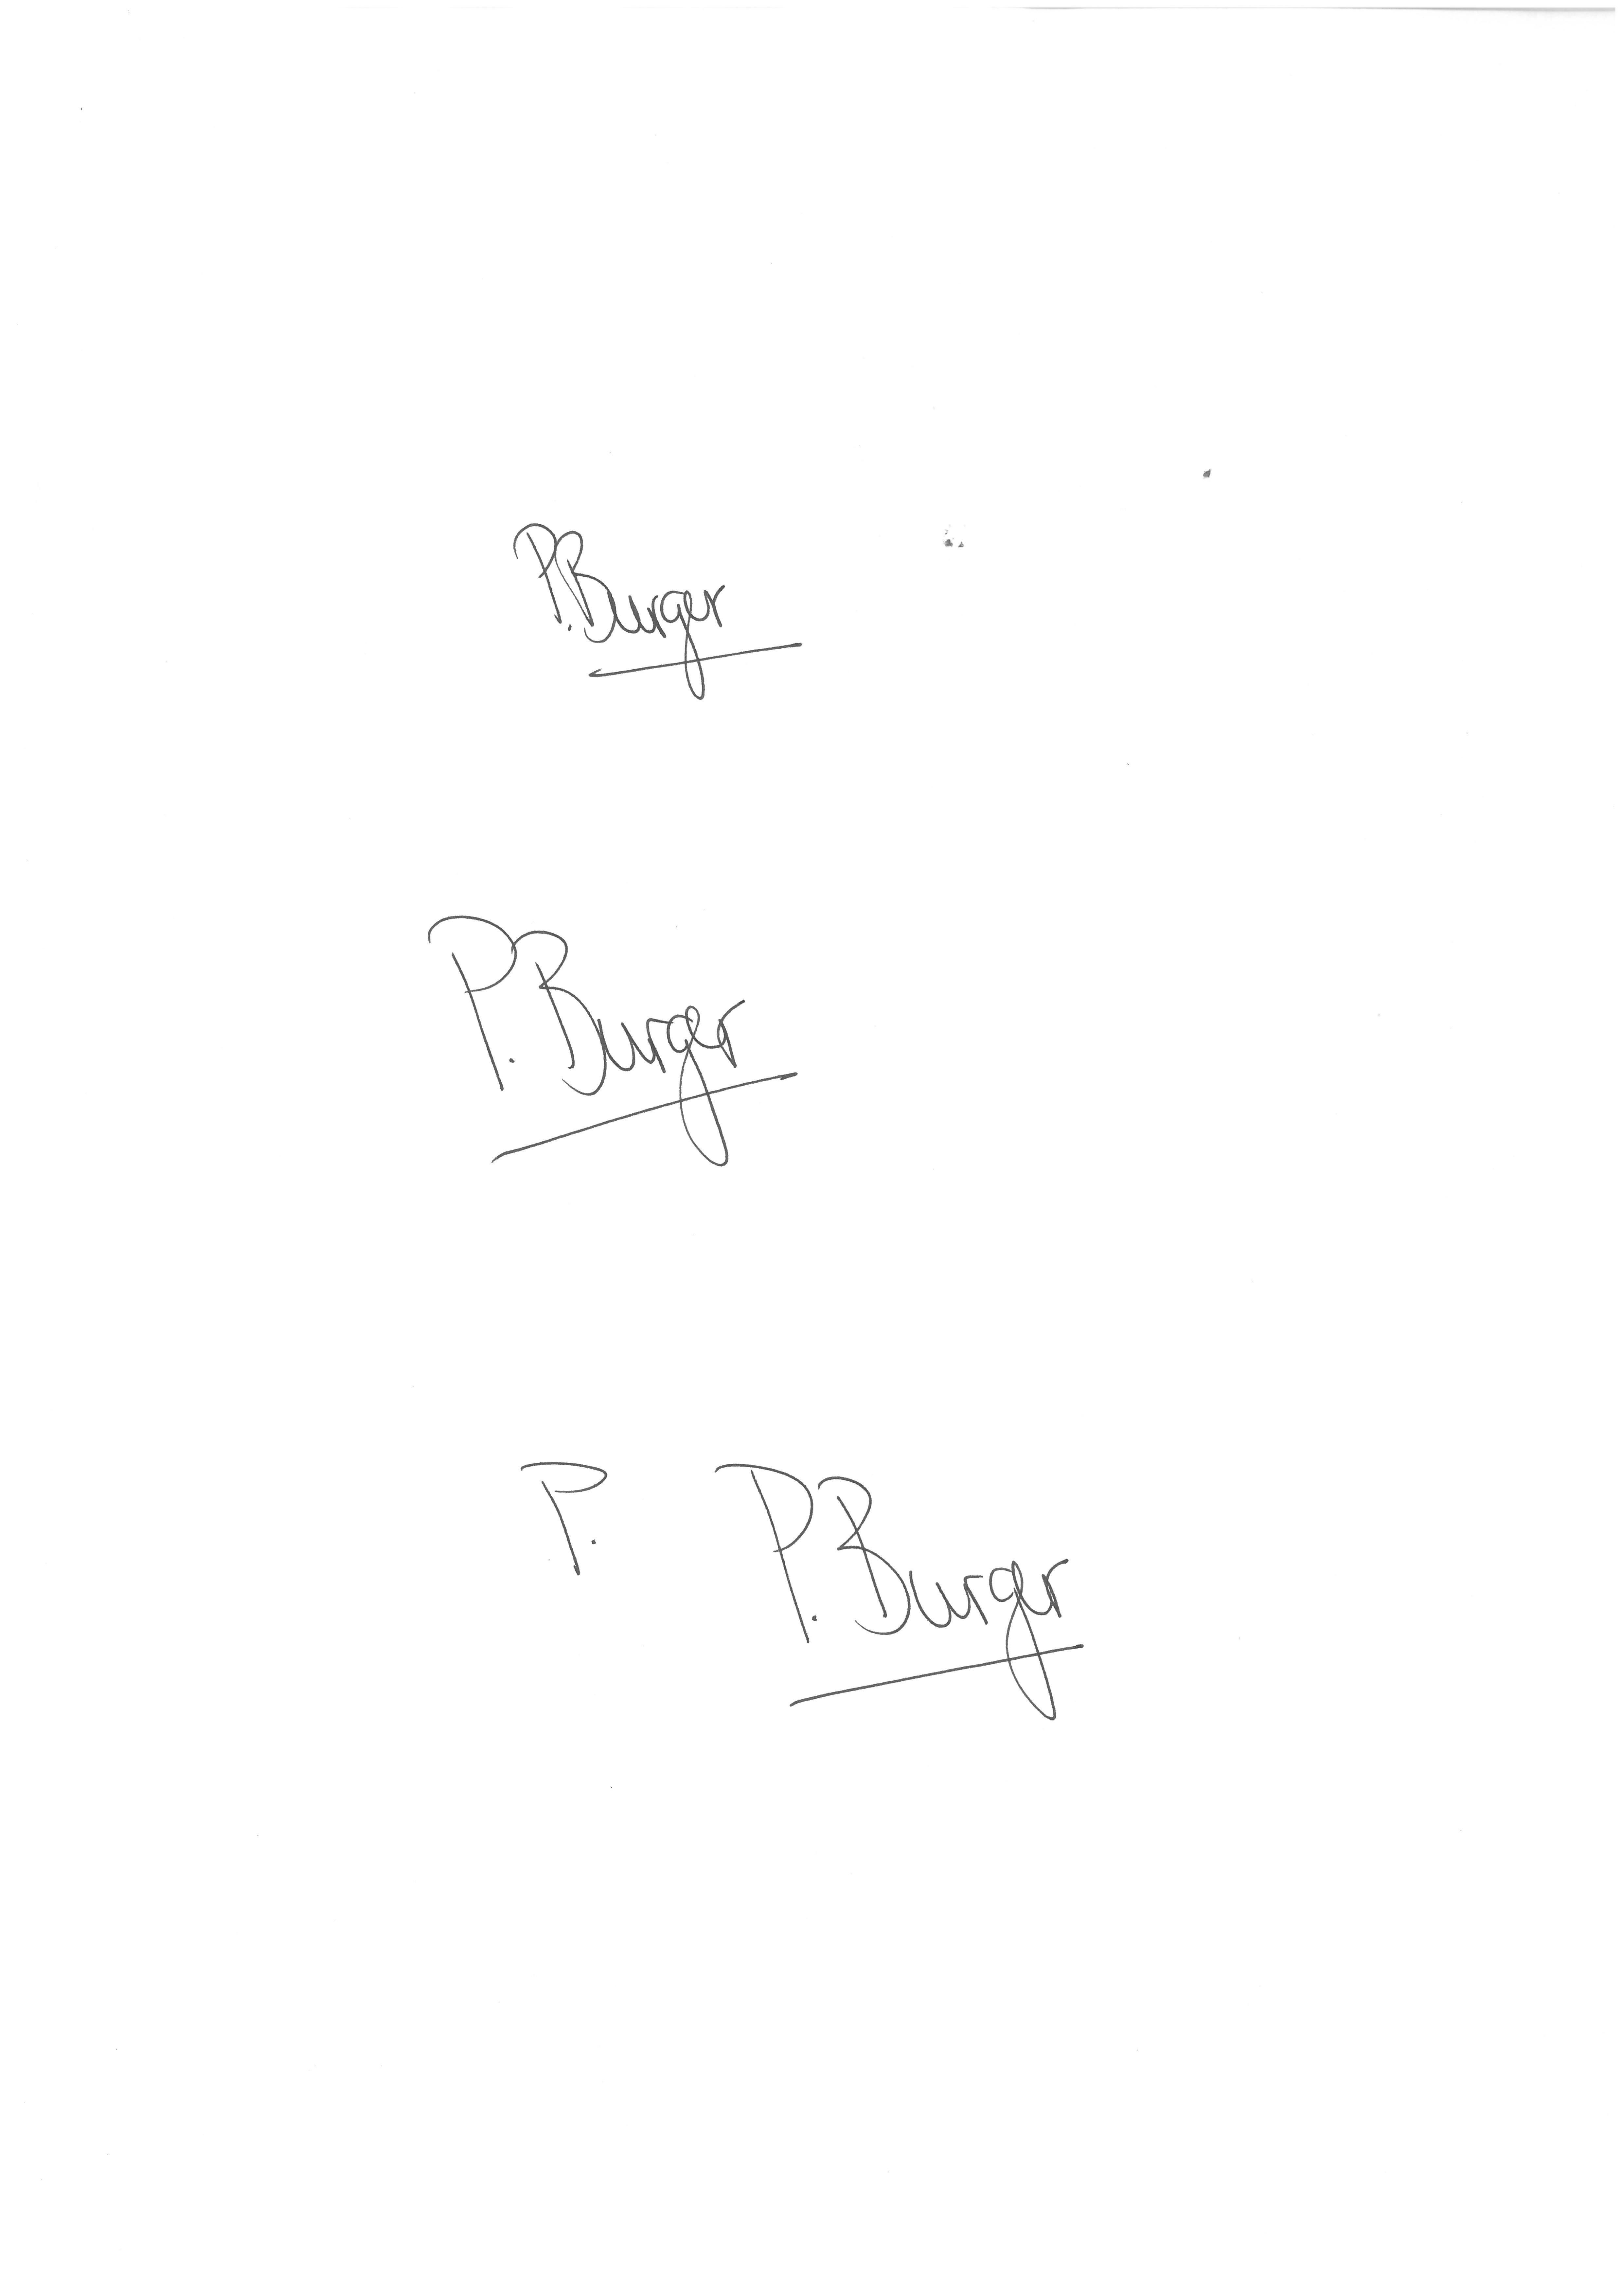 P. Burger
P. Burger
P. P. Burger